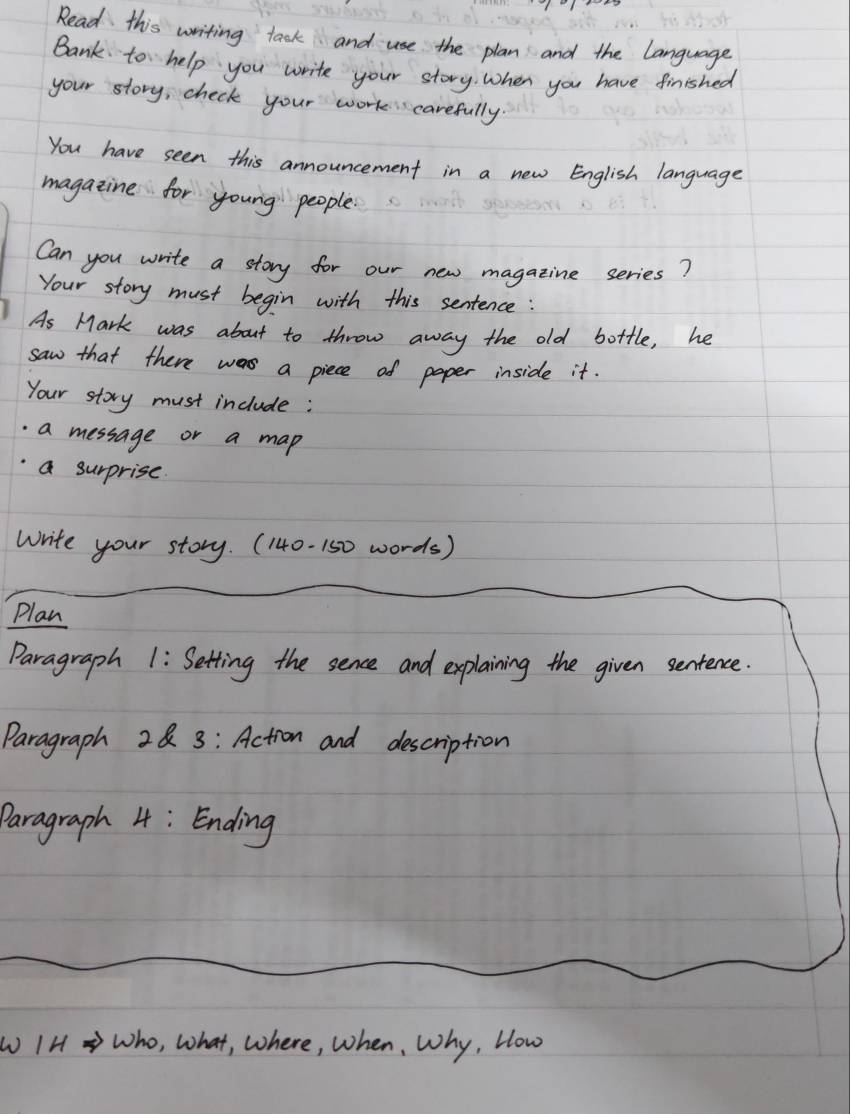 Read this writing task and use the plan and the Language
Bank to help you write your story. When you have finished
your story, check your work carefully.
You have seen this announcement in a new English language
magazine for young people.
Can you write a story for our new magazine series?
Your story must begin with this sentence:
As Mark was about to throw away the old bottle, he
saw that there was a piece of paper inside it.
Your story must include:
• a message or a map
• a surprise.
Write your story. (140-150 words)
Plan
Paragraph 1: Setting the sence and explaining the given sentence.
Paragraph 2 & 3: Action and description
Paragraph 4: Ending
W 1H ⇒ Who, What, Where, When, Why, How